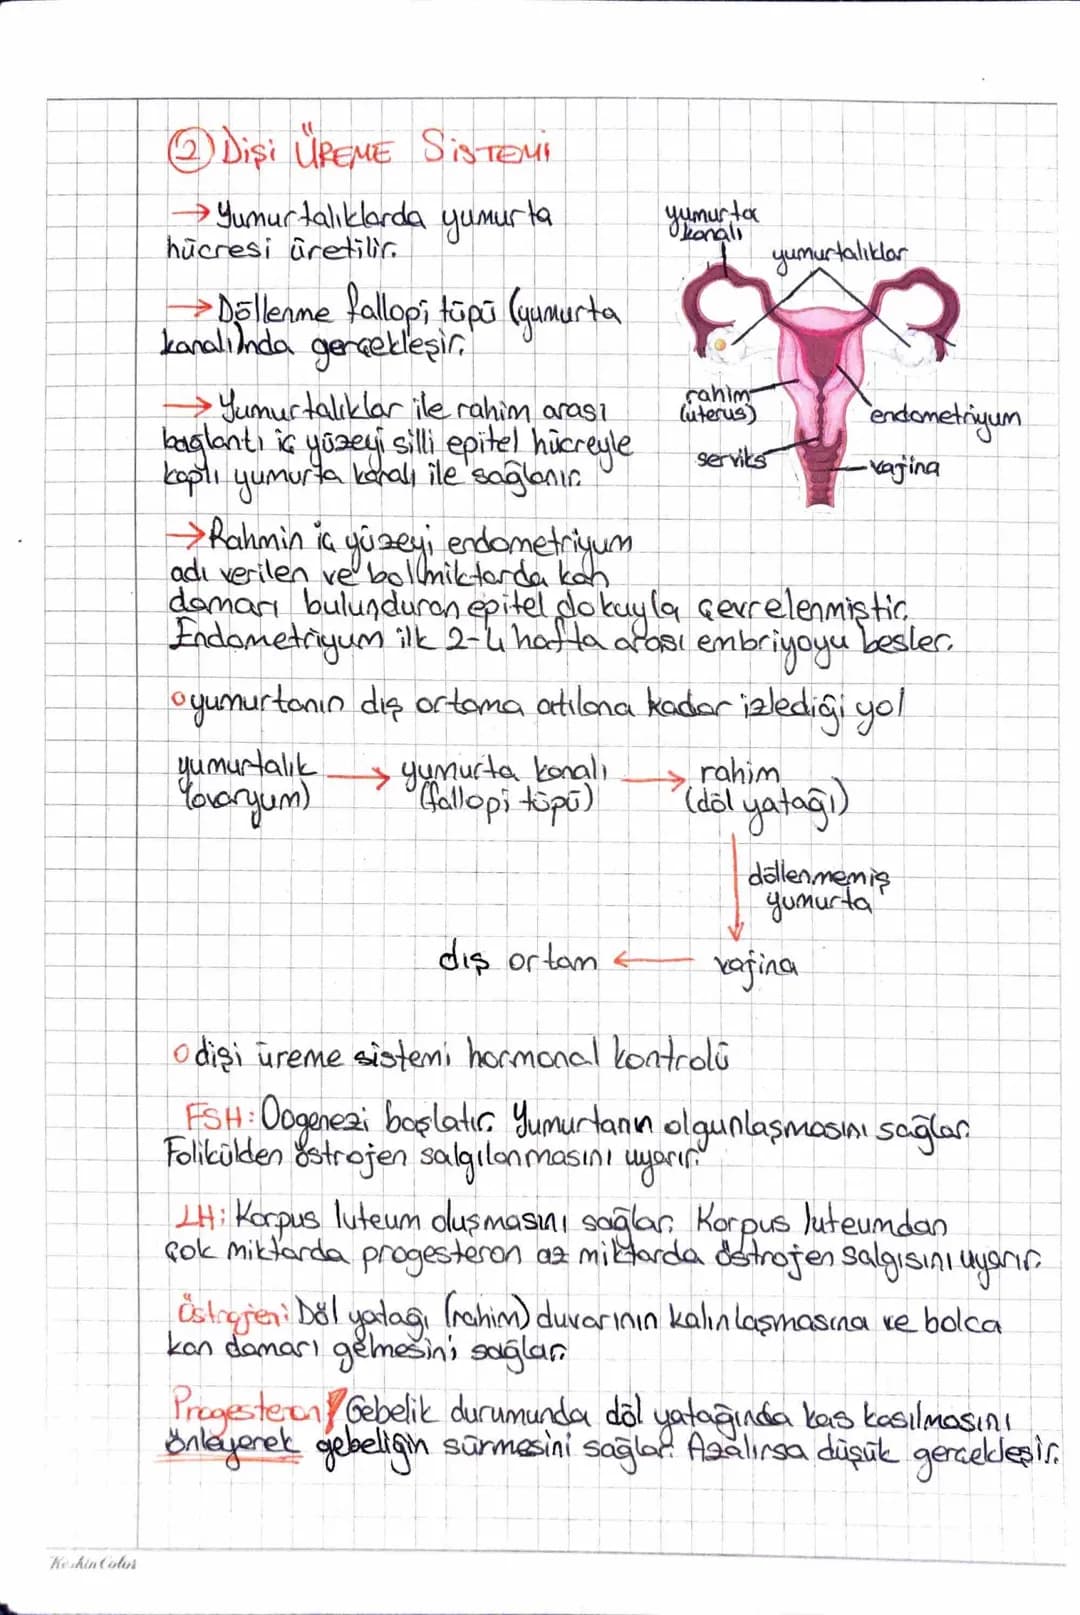 2) Dişi ÜREME SİSTEMİ
→ Yumurtalıklarda yumurta
hücresi üretilir.
→ Döllenme fallopi tüpü (yumurta
kanalı)nda gerçekleşir.
→ Yumurtalıklar ile rahim arası
bağlantı iç yüzeyi silli epitel hücreyle
kaplı yumurta kanalı ile sağlanır.
yumurta
kanalı
yumurtalıklar
rahim
(uterus)
endometriyum
serviks
vajina
→ Rahmin iç yüzeyi endometriyum
adı verilen ve bol miktarda kan
damarı bulunduran epitel dokuyla çevrelenmiştir.
Endometriyum ilk 2-4 hafta arası embriyoyu besler.
o yumurtanın dış ortama atılana kadar izlediği yol
yumurtalık → yumurta kanalı → rahim
(ovaryum) (fallopi tüpü) (döl yatağı)
döllenmemiş
yumurta
dış ortam ← vajina
o dişi üreme sistemi hormonal kontrolü
FSH: Oogenezi başlatır. Yumurtanın olgunlaşmasını sağlar.
Folikülden östrojen salgılanmasını uyarır.
LH: Korpus luteum oluşmasını sağlar. Korpus luteumdan
çok miktarda progesteron az miktarda östrojen salgısını uyarır.
Östrojen: Döl yatağı (rahim) duvarının kalınlaşmasına ve bolca
kan damarı gelmesini sağlar.
Progesteron: Gebelik durumunda döl yatağında kas kasılmasını
önleyerek gebeliğin sürmesini sağlar. Azalırsa düşük gerçekleşir.
Keskin Color